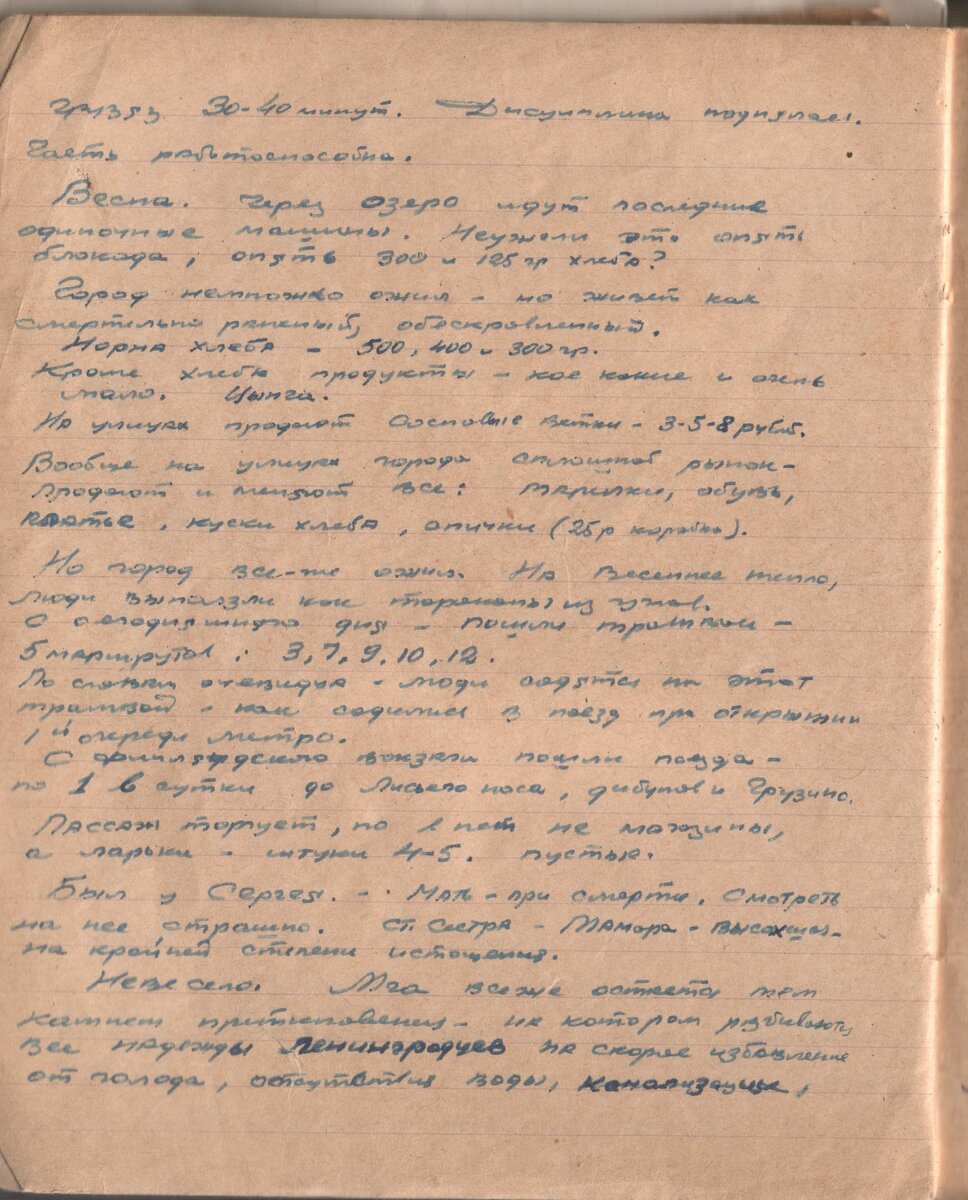 30-40 минут. Дисциплина поднялась.
Часть работоспособна.
Весна. Через озеро идут последние
одиночные машины. Неужели это опять
блокада, опять 300 и 125 гр хлеба?
Город немножко ожил - но живет как
смертельно раненый, обескровленный.
Норма хлеба - 500, 400 и 300 гр.
Кроме хлеба продукты - кое какие и очень
мало. Цынга.
На улицах продают сосновые ветки - 3-5-8 рублей.
Вообще на улицах города сплошной рынок -
продают и меняют все: тарелки, обувь,
платье, куски хлеба, спички (25р коробка).
Но город все-же ожил. На весеннее тепло,
люди выползли как тараканы из углов.
С сегодняшнего дня - пошли трамваи -
5 маршрутов: 3, 7, 9, 10, 12.
По словам очевидца - люди садятся на этот
трамвай - как садились в поезд при открытии
1й очереди метро.
С финляндского вокзала пошли поезда -
по 1 в сутки до Лисьего носа, дибунов и Грузино.
Пассаж торгует, но в нет не магазины,
а ларьки - штуки 4-5. пустые.
Был у Сергея. - Мать - при смерти. Смотреть
на нее страшно. ст. Сестра - Тамара - высохшая -
на крайней степени истощения.
Невесело. Мга все же остается тем
камнем приткновения - на котором разбиваются
все надежды Ленинградцев на скорое избавление
от голода, отсутствия воды, канализации,